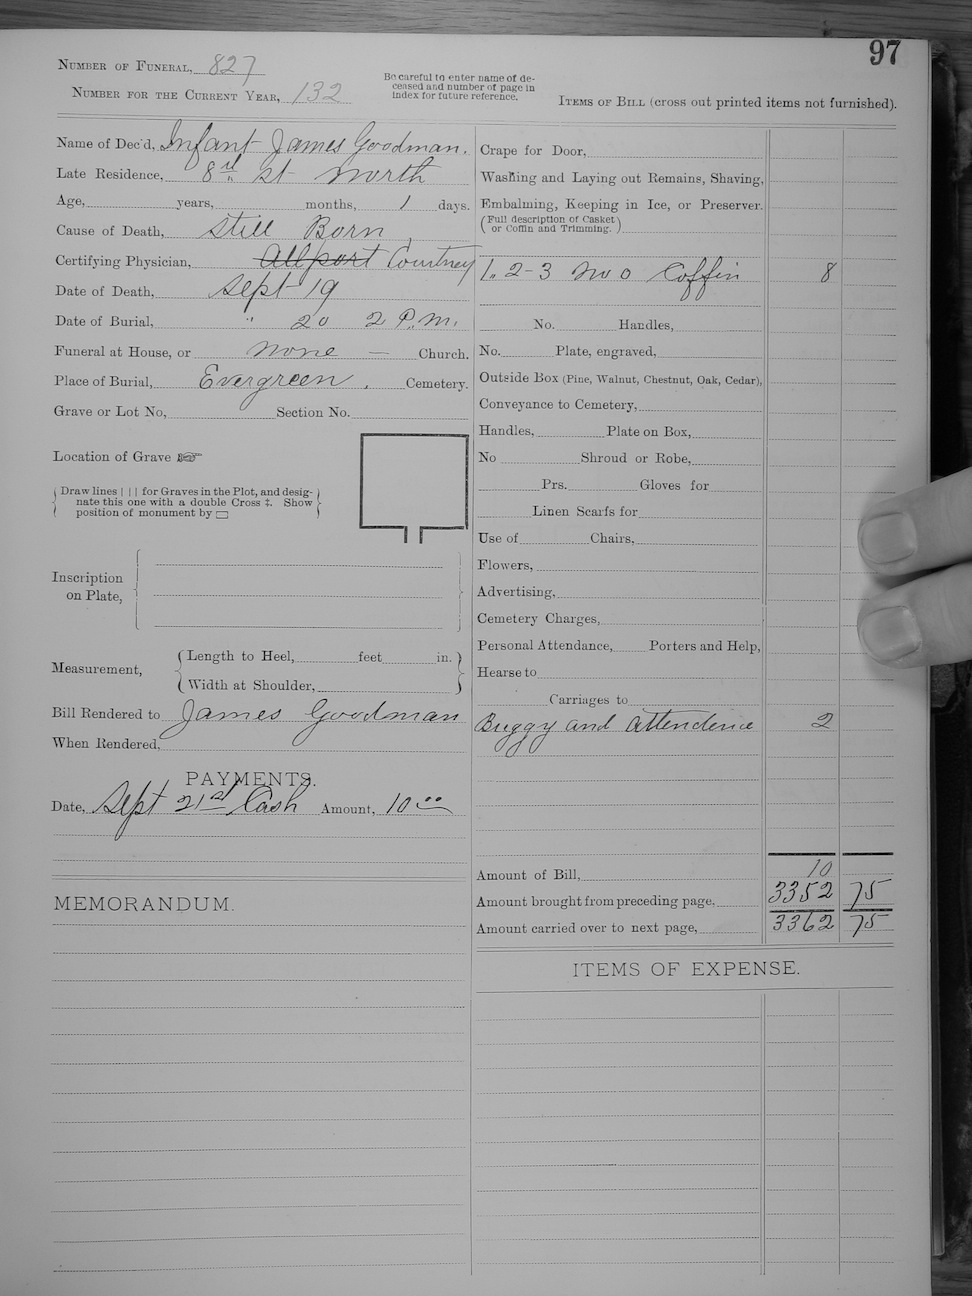 97
Number of Funeral, 827
Number for the Current Year, 132
Be careful to enter name of de-
ceased and number of page in
index for future reference.
Items of Bill (cross out printed items not furnished).
Name of Dec'd, Infant James Goodman.
Late Residence, 8th St North
Age, years, months, 1 days.
Cause of Death, Still Born
Certifying Physician, Allport Courtney
Date of Death, Sept 19
Date of Burial, " 20 2 P.M.
Funeral at House, or none — Church.
Place of Burial, Evergreen, Cemetery.
Grave or Lot No, Section No.
Location of Grave ☞
Draw lines | | | for Graves in the Plot, and desig-
nate this one with a double Cross ‡. Show
position of monument by ▭
Inscription
on Plate,
Measurement,
Length to Heel, feet in.
Width at Shoulder,
Bill Rendered to James Goodman
When Rendered,
PAYMENTS.
Date, Sept 21st Cash Amount, 10.00
MEMORANDUM.
Crape for Door,
Washing and Laying out Remains, Shaving,
Embalming, Keeping in Ice, or Preserver.
(Full description of Casket
or Coffin and Trimming.)
1. 2-3 No 0 Coffin 8
No. Handles,
No. Plate, engraved,
Outside Box (Pine, Walnut, Chestnut, Oak, Cedar),
Conveyance to Cemetery,
Handles, Plate on Box,
No Shroud or Robe,
Prs. Gloves for
Linen Scarfs for
Use of Chairs,
Flowers,
Advertising,
Cemetery Charges,
Personal Attendance, Porters and Help,
Hearse to
Carriages to
Buggy and Attendence 2
Amount of Bill, 10
Amount brought from preceding page, 3352 75
Amount carried over to next page, 3362 75
ITEMS OF EXPENSE.